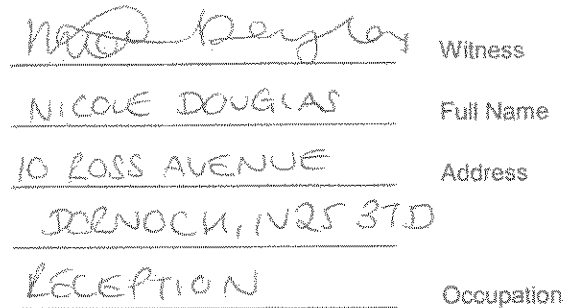 Nicole Douglas Witness
NICOLE DOUGLAS Full Name
10 ROSS AVENUE Address
DORNOCH, IV25 3TD
RECEPTION Occupation